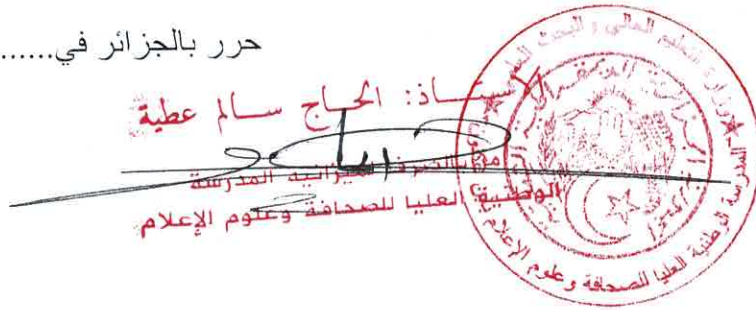 حرر بالجزائر في......
الأستاذ: الحاج سالم عطية
بالصرف لميزانية المدرسة
الوطنية العليا للصحافة وعلوم الإعلام
وزارة التعليم العالي و البحث العلمي
المدرسة الوطنية العليا للصحافة و علوم الإعلام